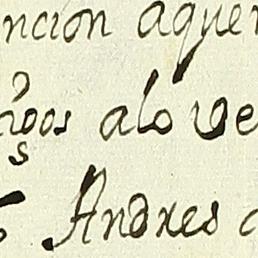 ncion aque
gos alo ve
Andres